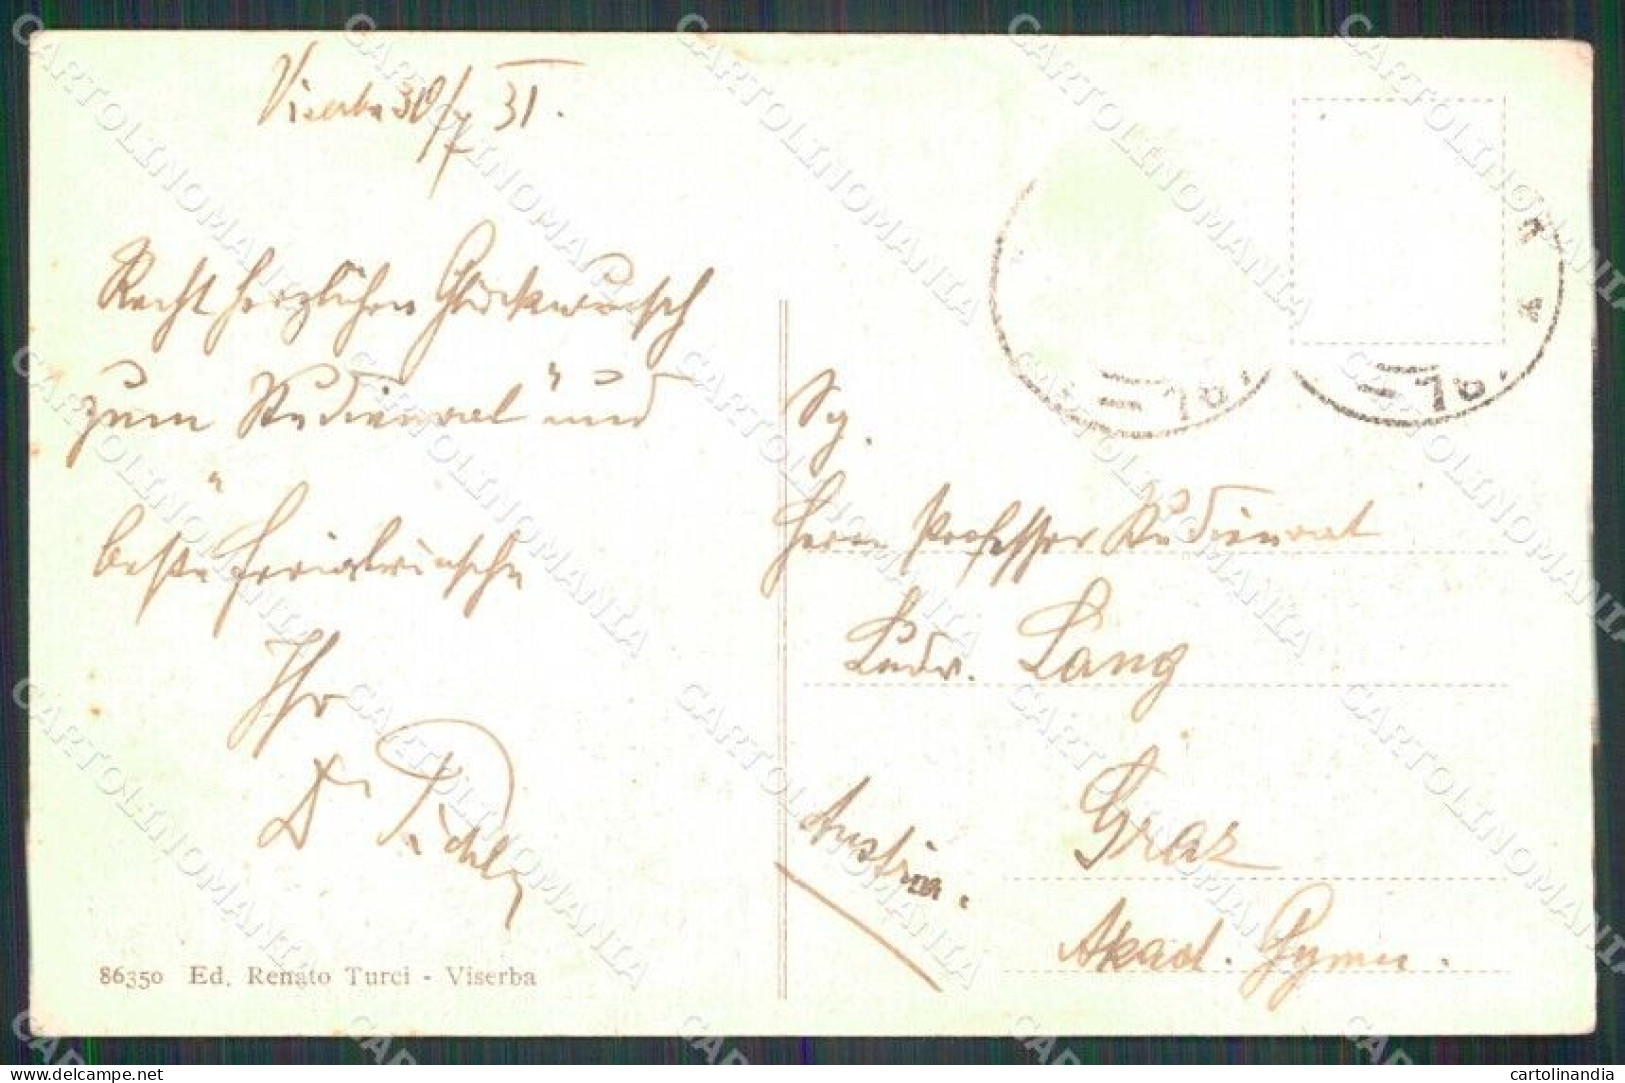 Viserba 30/7 31.
Recht herzlichen Glückwunsch
zum "Studienrat" und
beste Ferialwünsche
Ihr
Dr Pichl
Sg.
Herrn Professor Studienrat
Ludw. Lang
Graz
Austria.
Akad. Gymn.
86350 Ed. Renato Turci - Viserba
CARTOLINOMANIA
www.delcampe.net
cartolinandia